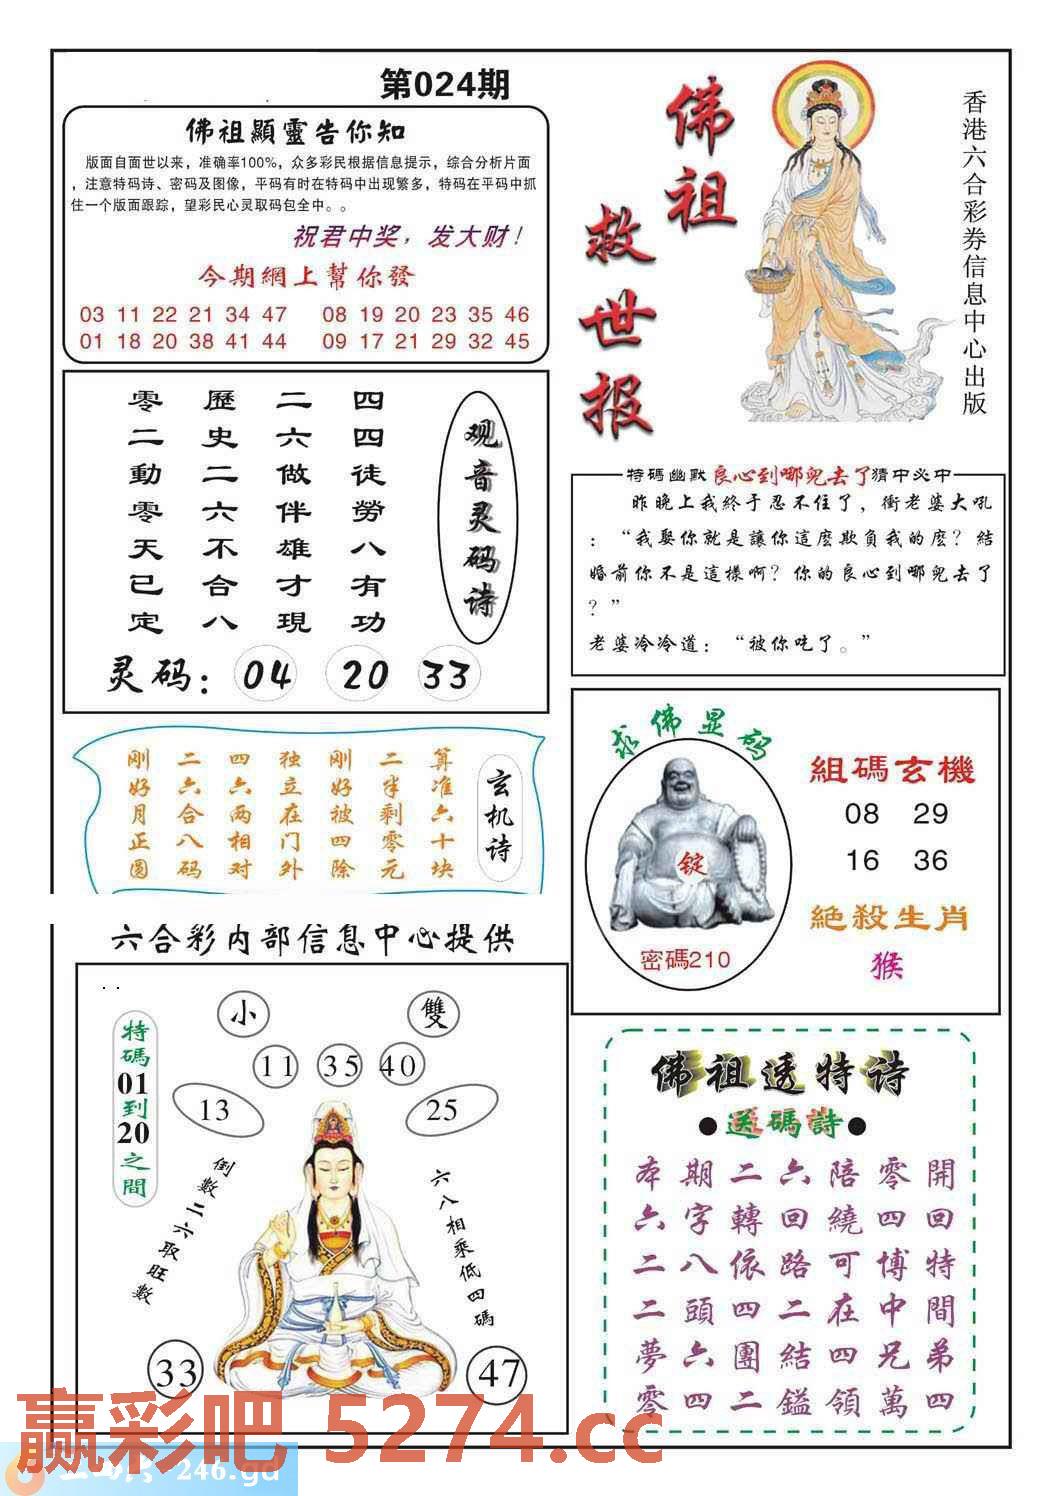 第024期
佛祖顯靈告你知
版面自面世以来，准确率100%，众多彩民根据信息提示，综合分析片面
，注意特码诗、密码及图像，平码有时在特码中出现繁多，特码在平码中抓
住一个版面跟踪，望彩民心灵取码包全中。。
祝君中奖，发大财！
今期網上幫你發
03 11 22 21 34 47 08 19 20 23 35 46
01 18 20 38 41 44 09 17 21 29 32 45
佛祖
救世报
香港六合彩券信息中心出版
观音灵码诗
四四徒勞八有功
二六做伴雄才現
歷史二六不合八
零二動零天已定
灵码：04 20 33
特碼幽默良心到哪兒去了猜中必中
昨晚上我終于忍不住了，衝老婆大吼
：“我娶你就是讓你這麽欺負我的麽？結
婚前你不是這樣啊？你的良心到哪兒去了
？”
老婆冷冷道：“被你吃了。”
玄机诗
算准六十块
二半剩零元
刚好被四除
独立在门外
四六两相对
二六合八码
刚好月正圆
求佛显码
锭
密碼210
組碼玄機
08 29
16 36
絕殺生肖
猴
六合彩内部信息中心提供
小 雙
11 35 40
13 25
特碼01到20之間
倒數二六取旺數
六八相乘低四碼
33 47
佛祖透特诗
●送碼詩●
本期二六陪零開
六字轉回繞四回
二八依路可博特
二頭四二在中間
夢六團結四兄弟
零四二鎰領萬四
赢彩吧 5274.cc
246.gd